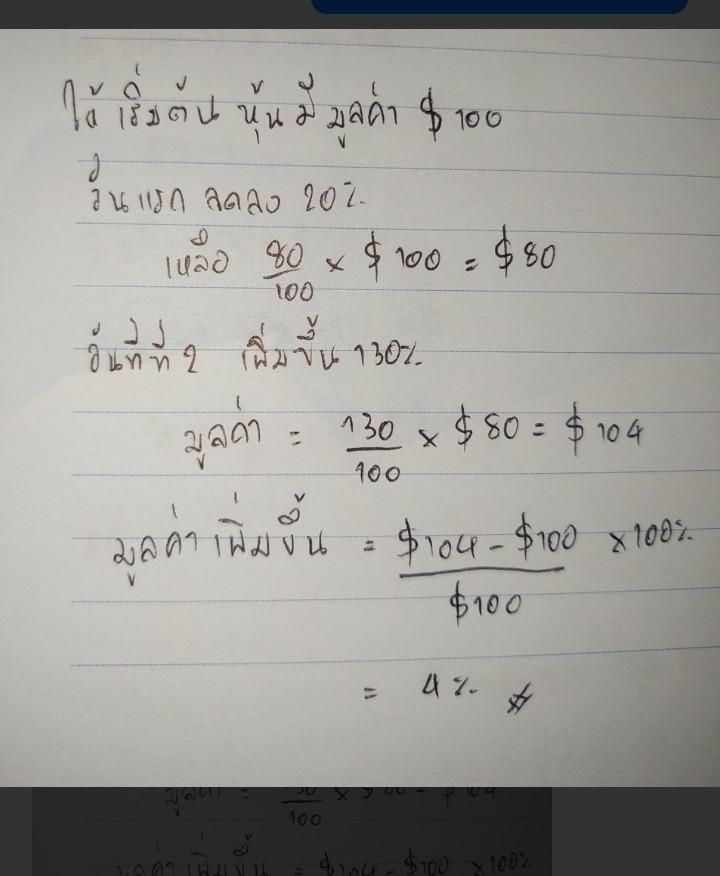 ให้ เริ่มต้น หุ้นมี มูลค่า $ 100
วันแรก ลดลง 20%
เหลือ 80/100 × $ 100 = $ 80
วันที่ที่ 2 เพิ่มขึ้น 130%
มูลค่า = 130/100 × $ 80 = $ 104
มูลค่าเพิ่มขึ้น = $104 - $100 × 100%
$100
= 4%
100
มูลค่าเพิ่มขึ้น = $104 - $100 × 100%